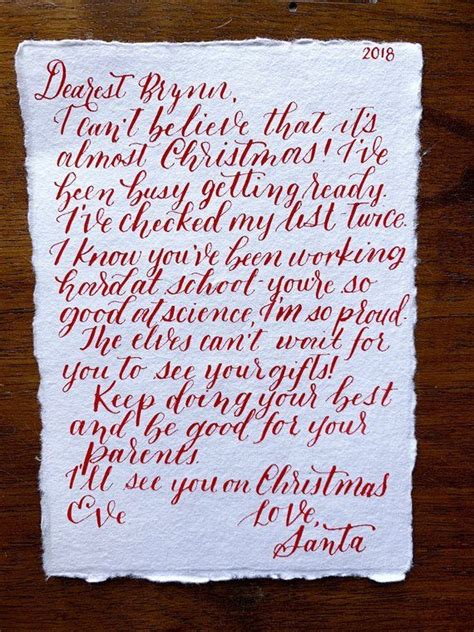 2018
Dearest Brynn,
I can't believe that it's
almost Christmas! I've
been busy getting ready.
I've checked my list twice.
I know you've been working
hard at school-you're so
good at science, I'm so proud.
The elves can't wait for
you to see your gifts!
Keep doing your best
and be good for your
parents.
I'll see you on Christmas
Eve Love,
Santa